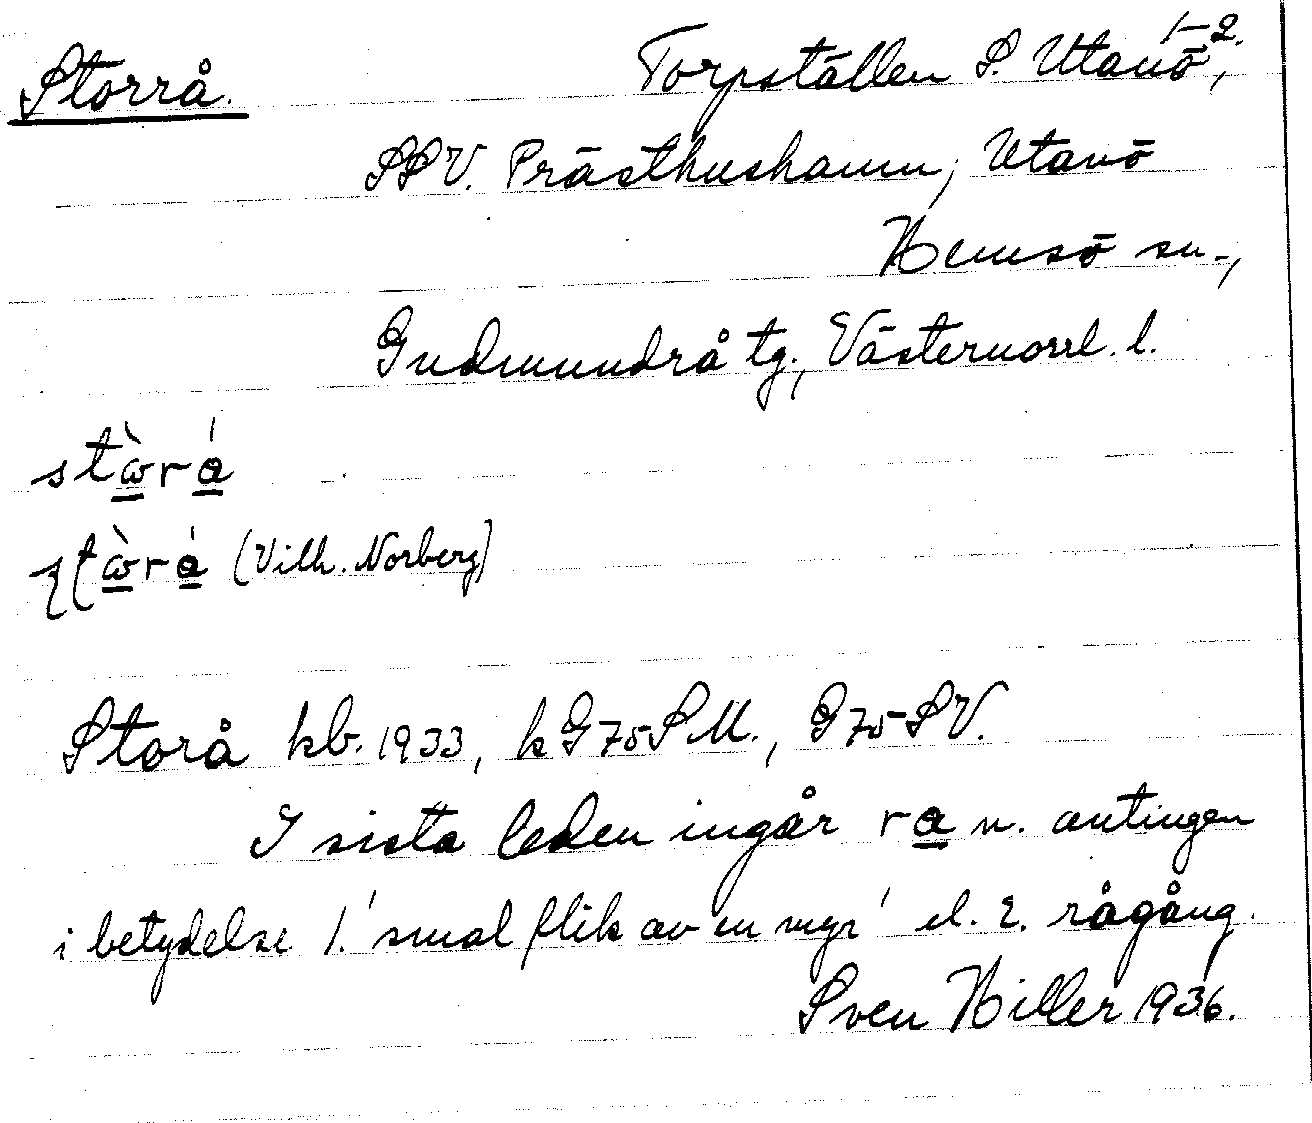 Storrå. Torpställen S. Utanö 1–2,
SSV. Prästhushamn, Utanö
Hemsö sn.,
Gudmundrå tg., Västernorrl. l.
stὼrá
ʂʈὼrá (Vilh. Norberg)
Storå kb. 1933, k G75SM., G75SV.
I sista leden ingår ra n. antingen
i betydelse 1. 'smal flik av en myr' el. 2. rågång.
Sven Hiller 1936.